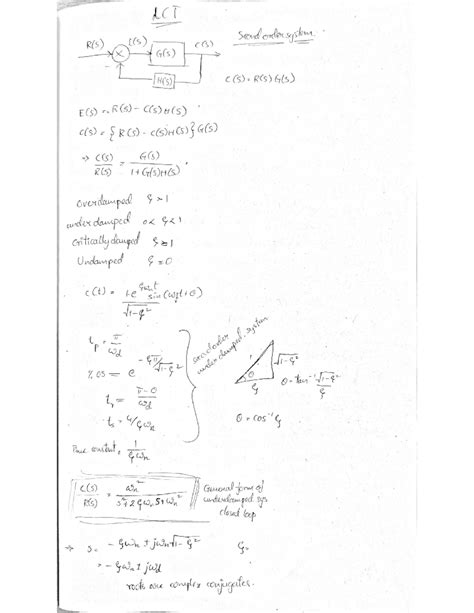 LCT
R(s) E(s) G(s) C(s)
H(s)
Second order system
C(s) = R(s) G(s)
E(s) = R(s) - C(s)H(s)
C(s) = { R(s) - C(s)H(s) } G(s)
⇒ C(s)/R(s) = G(s)/1+G(s)H(s)
Overdamped ξ > 1
underdamped 0 < ξ < 1
Critically damped ξ = 1
Undamped ξ = 0
sin (ωdt + θ)
√1-ξ²
tp = π/ωd
% OS = e^-ξπ/√1-ξ²
tr = π-θ/ωd
ts = 4/ξωn
second order
underdamped system
1 √1-ξ²
θ
ξ
θ = tan⁻¹ √1-ξ²/ξ
θ = cos⁻¹ ξ
Time constant = 1/ξωn
C(s)/R(s) = ωn²/s²+2ξωns+ωn²
General form of
underdamped sys.
cloud loop
⇒ s = - ξωn ± jωn√1-ξ² ξ=
= - ξωn ± jωd
roots are complex conjugates.